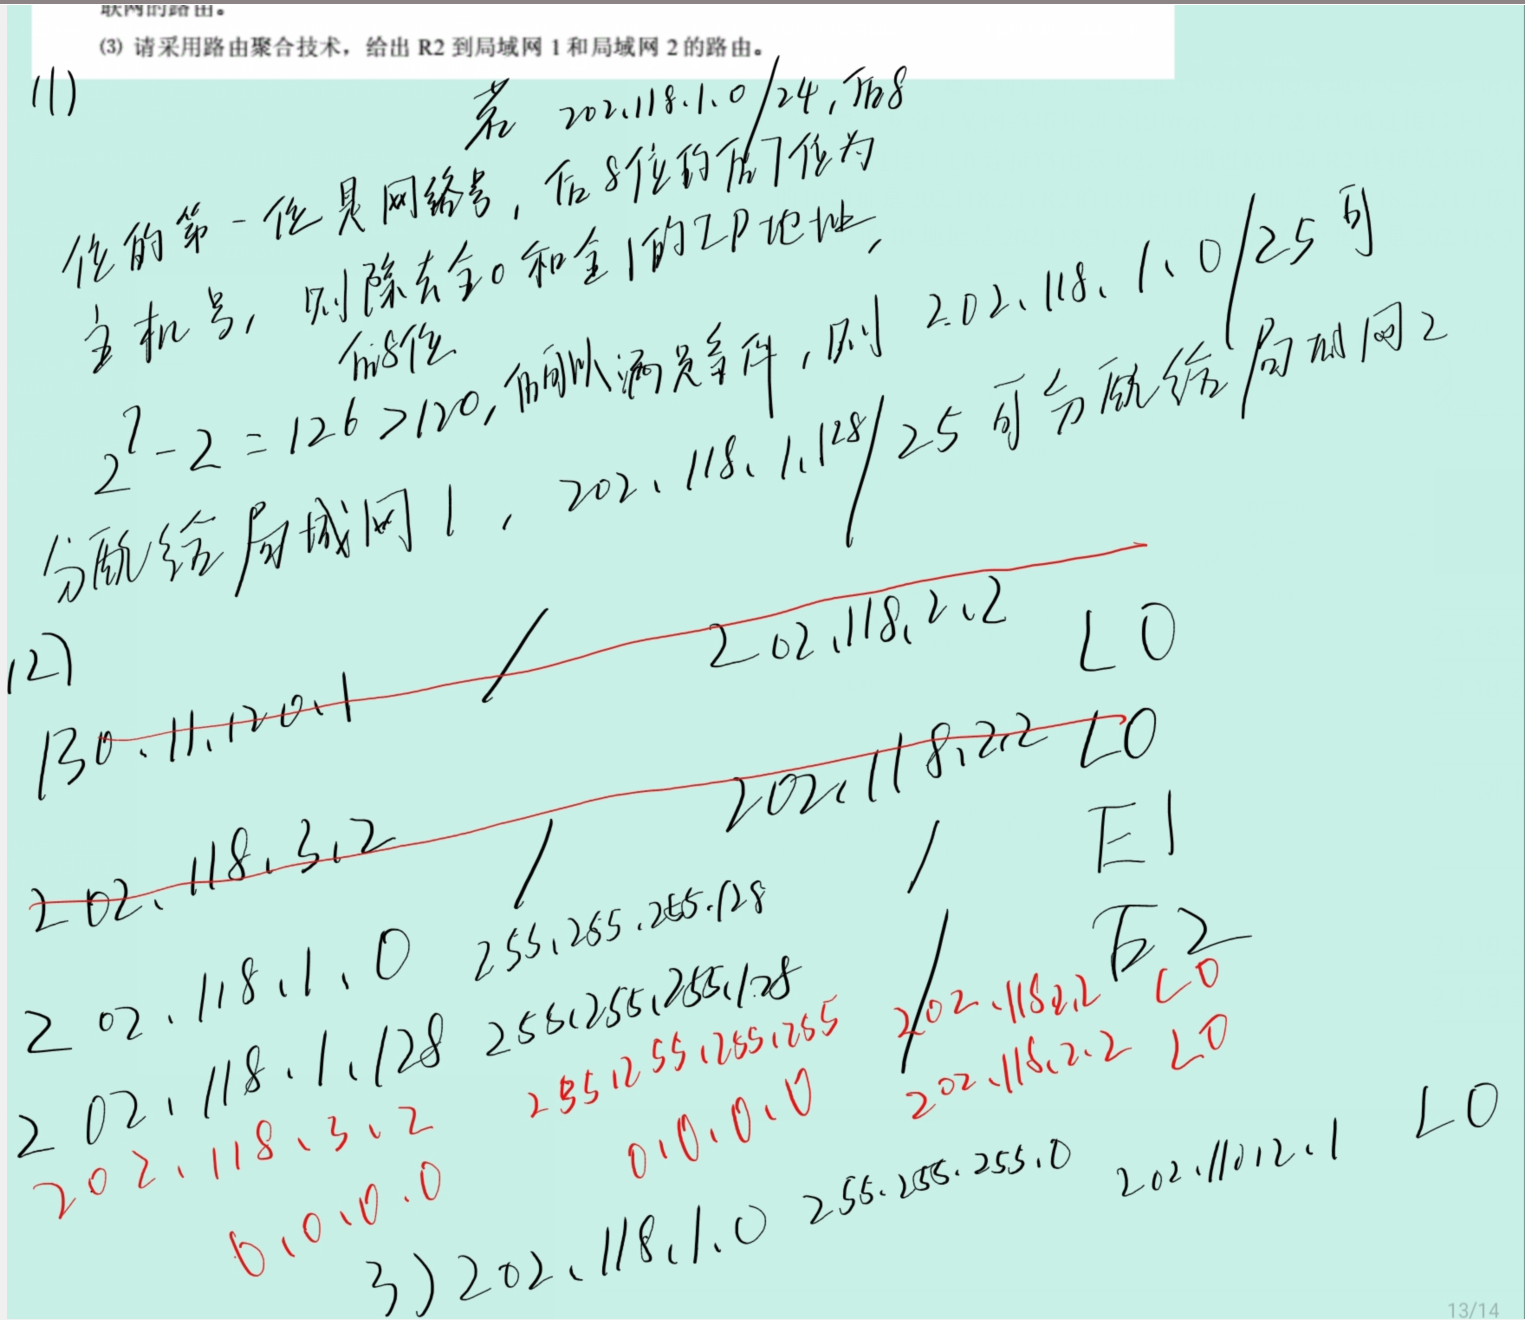 联网的路由。
(3) 请采用路由聚合技术，给出 R2 到局域网 1 和局域网 2 的路由。
(1)
若 202.118.1.0/24，后8
位的第一位是网络号，后8位的后7位为
主机号，则除去全0和全1的IP地址，
后8位
2^7-2=126>120，所以满足条件，则 202.118.1.0/25可
分配给局域网1，202.118.1.128/25可分配给局域网2
(2)
130.11.120.1 / 202.118.2.2 L0
202.118.3.2 / 202.118.2.2 L0
202.118.1.0 255.255.255.128 / E1
202.118.1.128 255.255.255.128 / E2
202.118.3.2 255.255.255.255 202.118.2.2 L0
0.0.0.0 0.0.0.0 202.118.2.2 L0
3) 202.118.1.0 255.255.255.0 202.118.2.1 L0
13/14